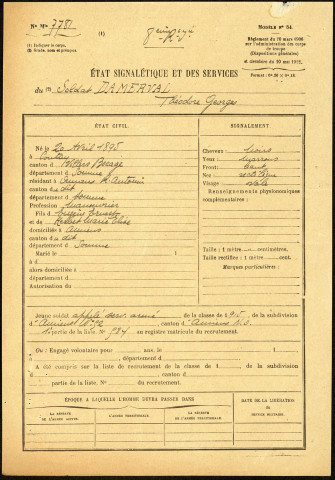 N° Mle 7781
(1)
(1) Indiquer le corps.
(2) Grade, nom et prénoms.
MODÈLE N° 54.
Règlement du 20 mars 1906
sur l'administration des corps
de troupe
(Dispositions générales)
et circulaire du 30 mai 1912.
ÉTAT SIGNALÉTIQUE ET DES SERVICES
du (2) Soldat DAMERVAL
Théodore Georges
ÉTAT CIVIL.
Né le 20 Avril 1895
à
canton de Villers Bocage
département de Somme
résidant à Amiens
canton de dit
département de Somme
Profession Manouvrier
Fils d
et d
domicilié s à Amiens
canton de dit
département d Somme
Marié le
à
alors domiciliée à
département d
Autorisation du
SIGNALEMENT.
Cheveux noirs
Yeux marrons
Front haut
Nez rectiligne
Visage ovale
Renseignements physionomiques
complémentaires :
Taille : 1 mètre centimètres.
Taille rectifiée : 1 mètre cent.
Marques particulières :
Jeune soldat appelé serv. armé de la classe de 1915, de la subdivision
d'Amiens canton d'Amiens N.O.
1re partie de la liste. N° 984 au registre matricule du recrutement.
Ou : Engagé volontaire pour ans, le à
département d
a été compris sur la liste de recrutement de la classe de 1 de la subdivision
d canton d
partie de la liste. N° du recrutement.
ÉPOQUE A LAQUELLE L'HOMME DEVRA PASSER DANS
LA RÉSERVE
DE L'ARMÉE ACTIVE.
L'ARMÉE TERRITORIALE.
LA RÉSERVE
DE L'ARMÉE TERRITORIALE.
DATE DE LA LIBÉRATION
DU SERVICE MILITAIRE.